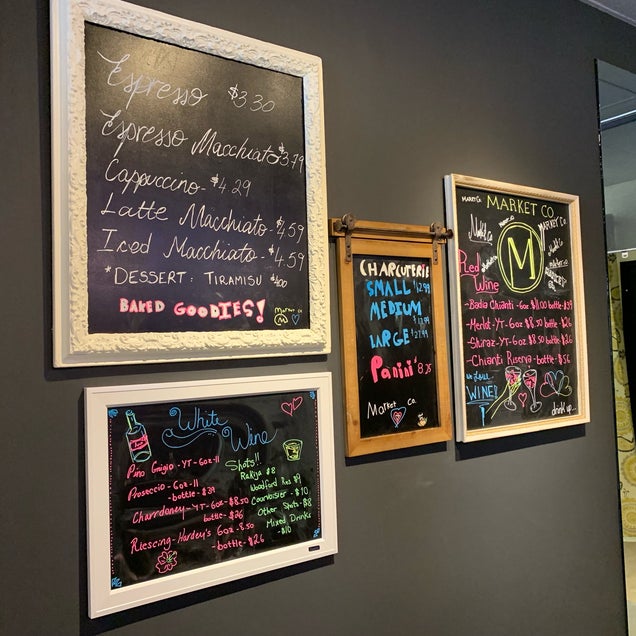 Espresso $3.30
Espresso Macchiato $3.79
Cappuccino - $4.29
Latte Macchiato - $4.59
Iced Macchiato - $4.59
*DESSERT: TIRAMISU
BAKED GOODIES!
Market Co
M
White Wine
Pino Grigio - YT - 6oz - 11
Prosecco - 6oz - 11
- bottle - $39
Charrdoney - YT - 6oz - $8.50
bottle - $26
Riescing - Hardey's 6oz - 8.50
- bottle - $26
Shots!!
Rakija $8
Woodford Res $9
Courvoisier - $10
Other Shots - $8
Mixed Drinks
- $10
CHARCUTERIE
SMALL $12.99
MEDIUM
LARGE $27.99
Panini $8.25
Market Co.
MARKET CO
MARKET CO
Market Co
MARKET CO
M
Red
Wine
- Badia Chianti - 6oz $11.00 bottle - $39
- Merlot - YT - 6oz $8.50 bottle - $26
- Shiraz - YT - 6oz $8.50 bottle - $26
- Chianti Riserva - bottle - $56
WINE!
drink up...